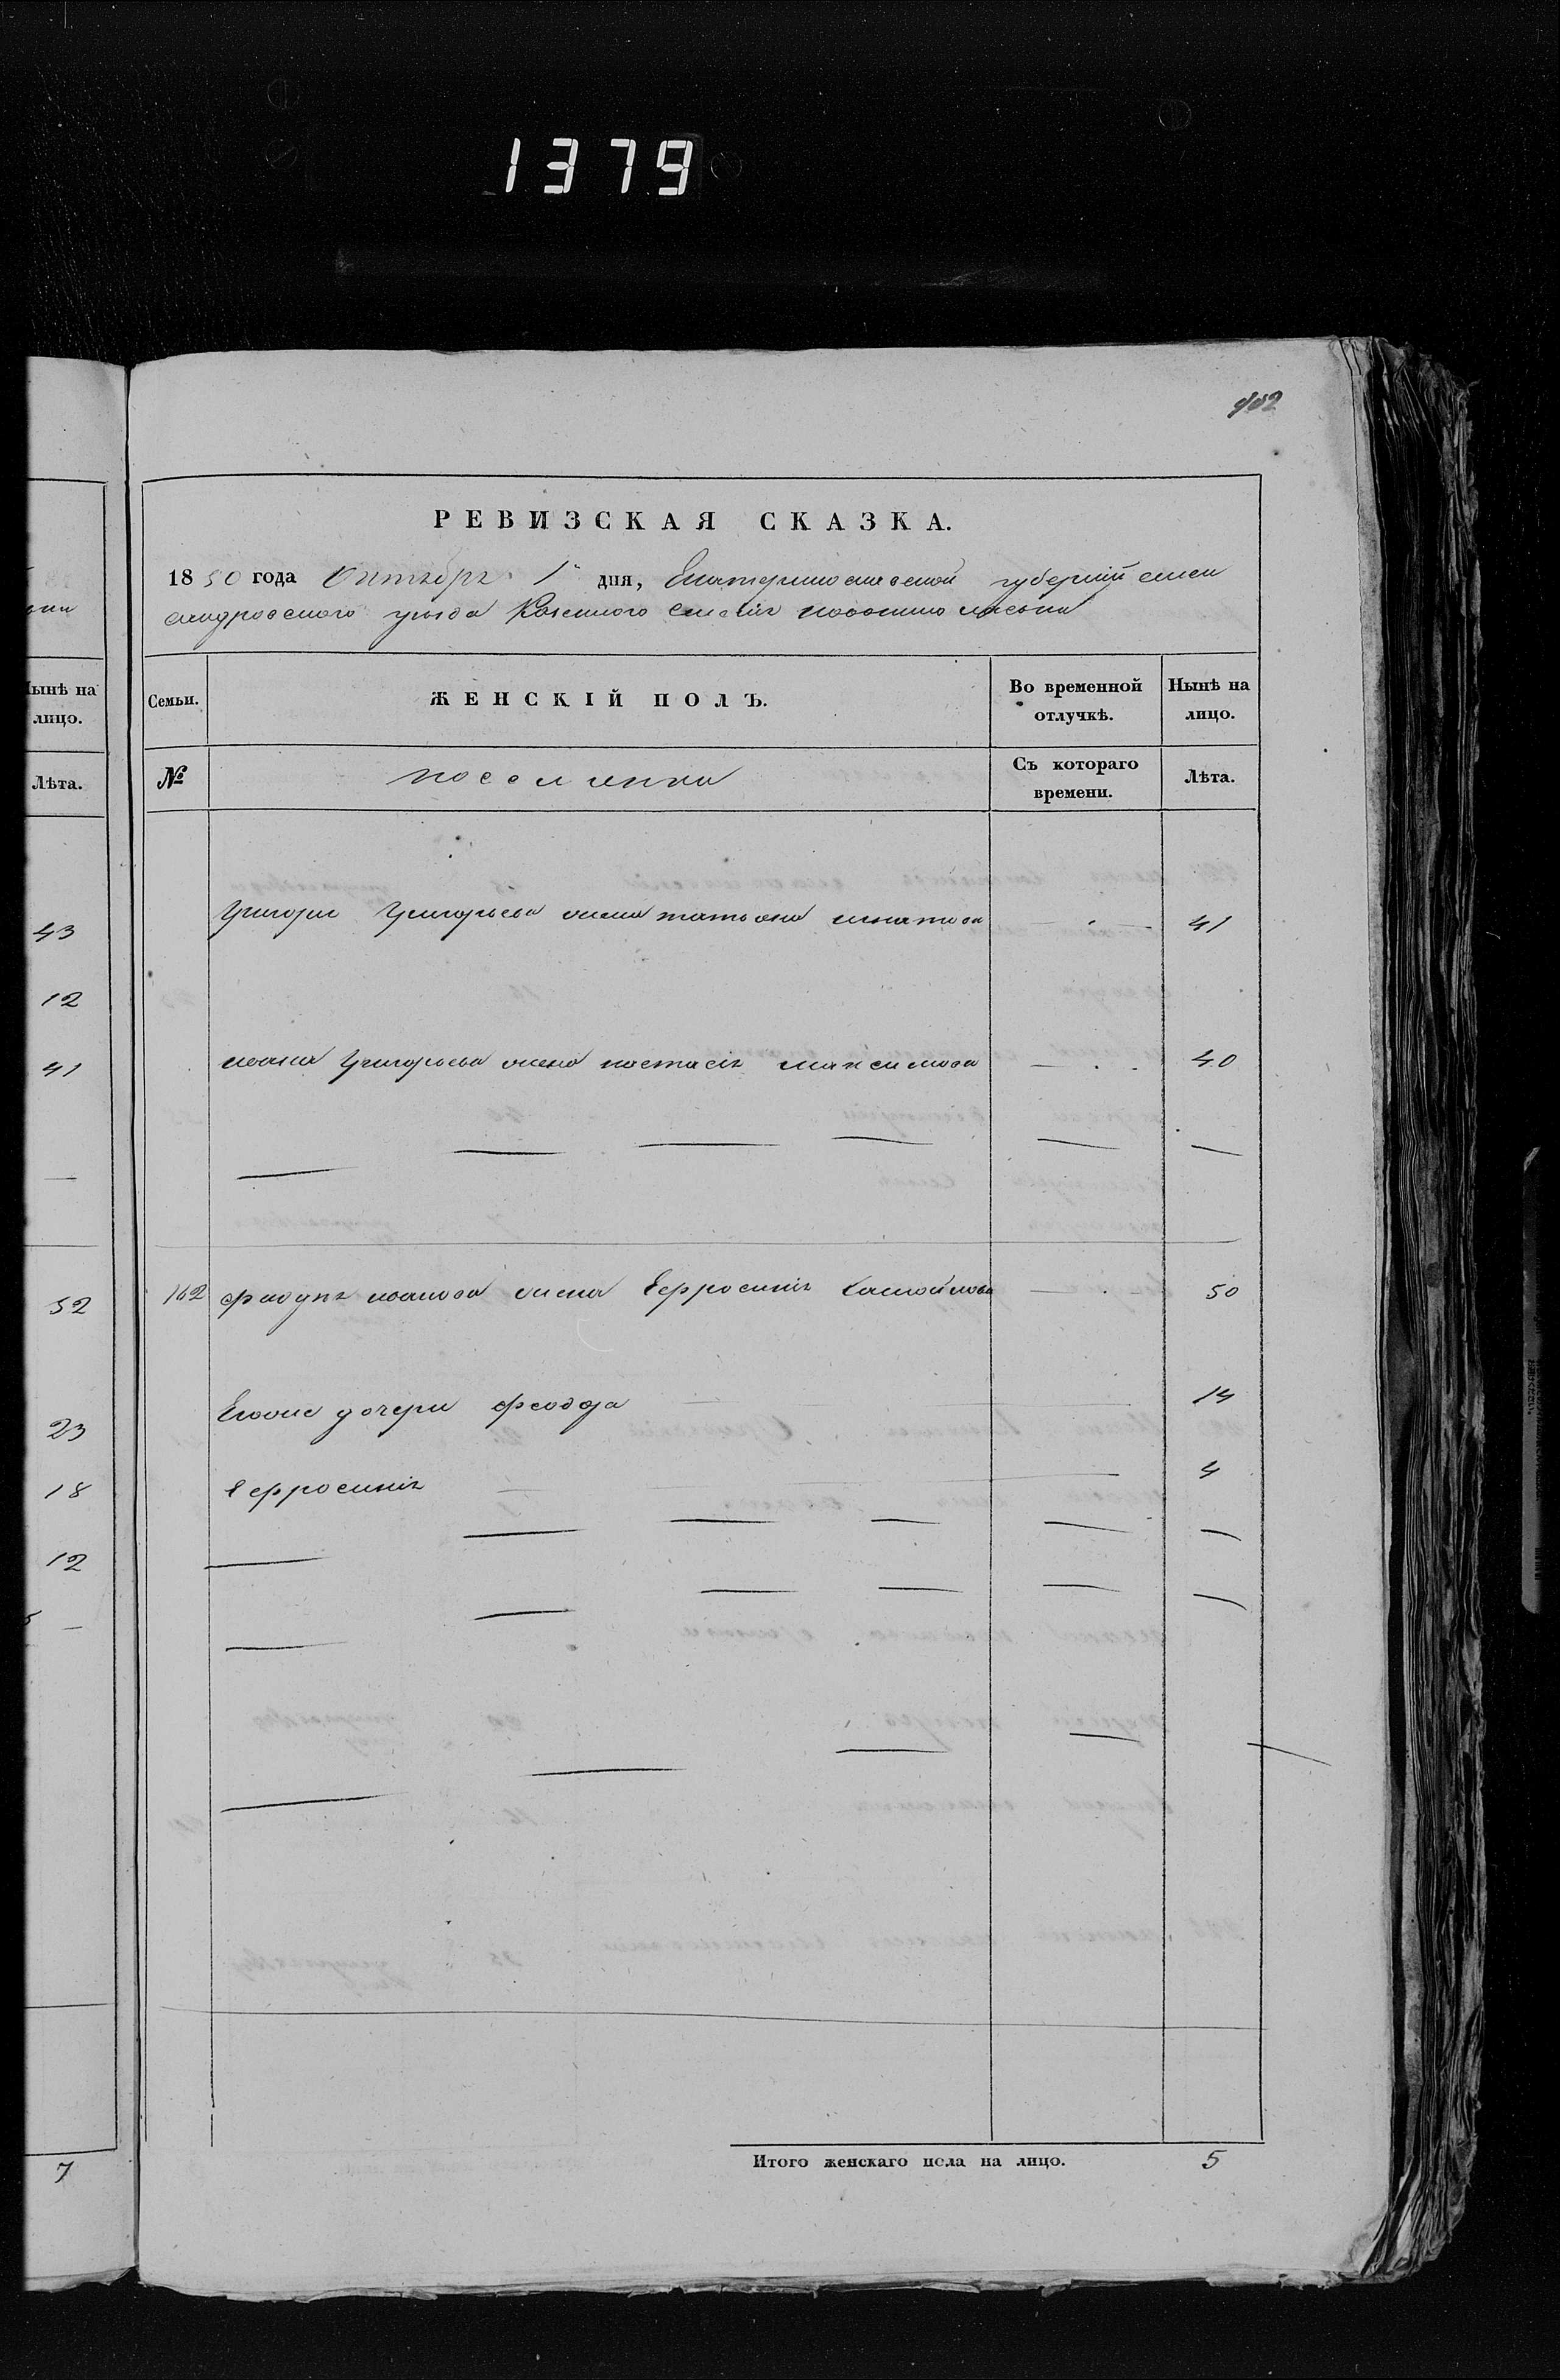 1379
902
РЕВИЗСКАЯ СКАЗКА.
1850 года Октябрь 1 дня, Екатеринославской губернїй алек
сандровского уезда Казенного
Семьи.
ЖЕНСКІЙ ПОЛЪ.
Во временной отлучкѣ.
Нынѣ на лицо.
№
поселянка
Съ котораго времени.
Лѣта.
Григори Григорьева жена татьяна игнатова 41
ивана Григорьева жена настасія максимова 40
162 иванова жена Ефросинія 50
Еговые дочери 14
Ефросинія 4
Итого женскаго пола на лицо. 5
Нынѣ на
лицо.
Лѣта.
43
12
41
52
23
18
12
7